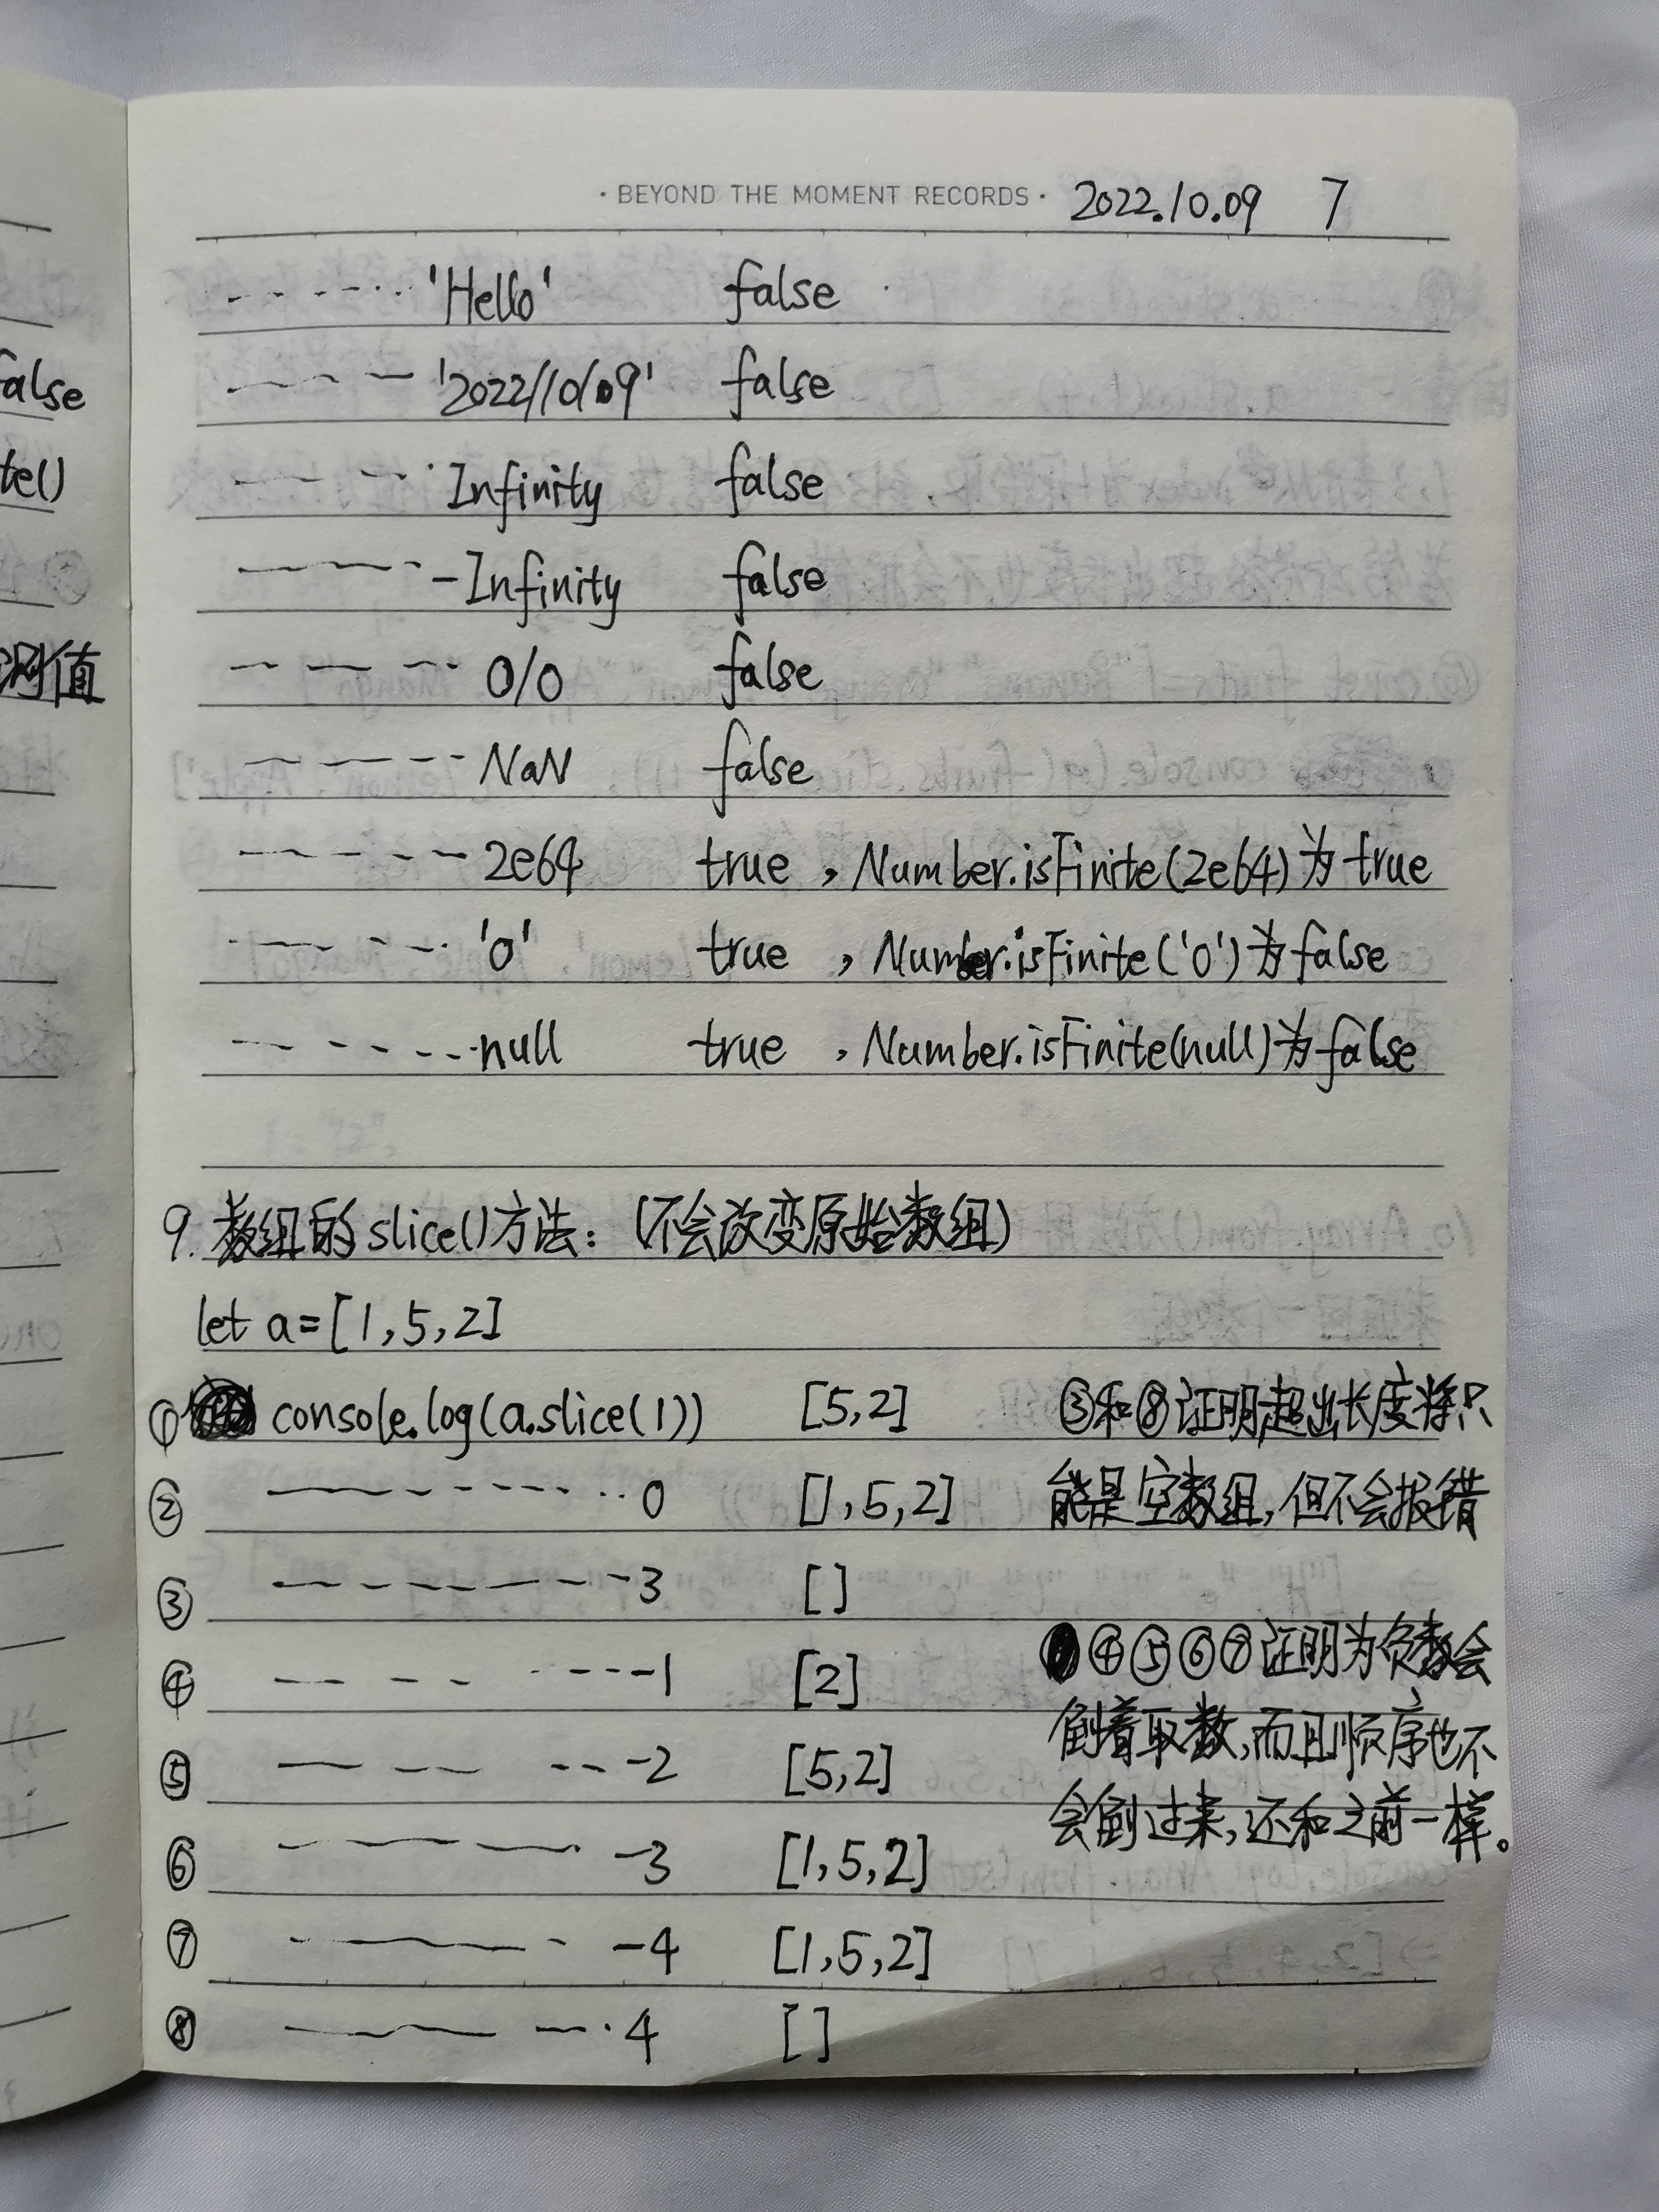 · BEYOND THE MOMENT RECORDS · 2022.10.09 7
'Hello' false
'2022/10/09' false
Infinity false
-Infinity false
0/0 false
NaN false
2e64 true , Number.isFinite(2e64)为true
'0' true , Number.isFinite('0')为false
null true , Number.isFinite(null)为false
9. 数组的slice()方法：(不会改变原始数组)
let a=[1,5,2]
① console.log(a.slice(1)) [5,2]
② 0 [1,5,2]
③ 3 []
④ -1 [2]
⑤ -2 [5,2]
⑥ -3 [1,5,2]
⑦ -4 [1,5,2]
⑧ 4 []
③和⑧证明超出长度将只
能是空数组，但不会报错
④⑤⑥⑦证明为负数会
倒着取数，而且顺序也不
会倒过来，还和之前一样。
alse
te()
测值